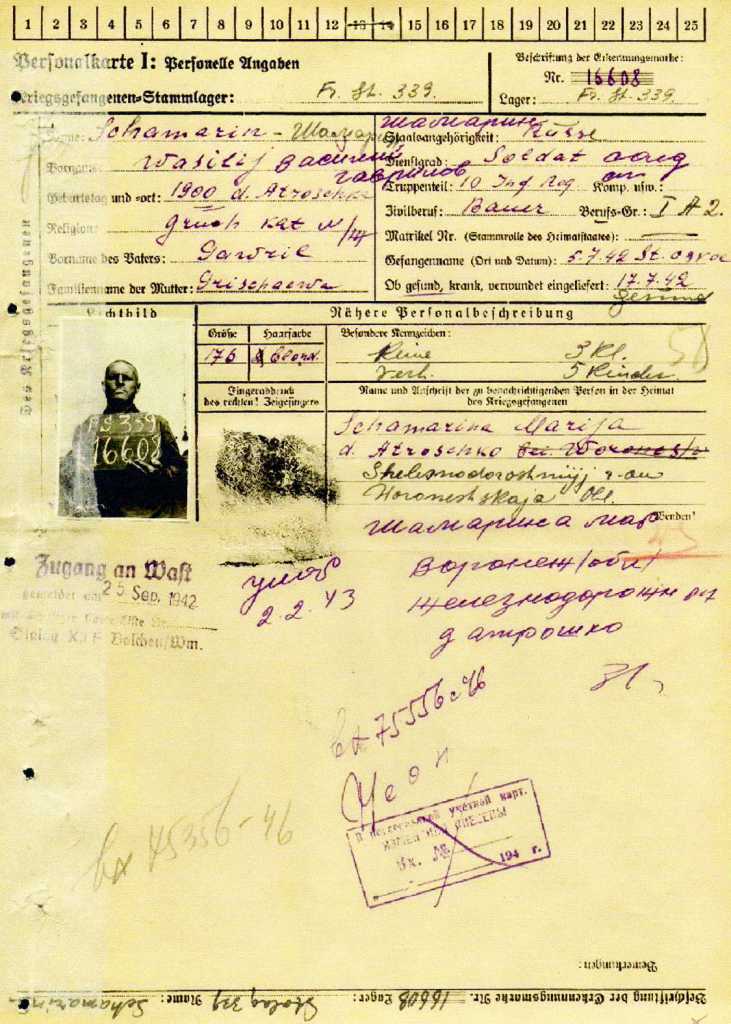 1 2 3 4 5 6 7 8 9 10 11 12 13 14 15 16 17 18 19 20 21 22 23 24 25
Personalkarte I: Personelle Angaben
Kriegsgefangenen-Stammlager: Fr. St. 339.
Beschriftung der Erkennungsmarke:
Nr. 16608
Lager: Fr. St. 339.
Name: Schamarin - Шамарин
Vorname: Wasilij Василий
Гаврилов
Geburtstag und -ort: 1900 d. Atroschko
Religion: griech Kat
Vorname des Vaters: Gawril
Familienname der Mutter: Grischaewa
Шамарин
Staatsangehörigkeit: Russe
Dienstgrad: Soldat
Truppenteil: 10 Inf Reg Komp. usw.:
Zivilberuf: Bauer Berufs-Gr.: I A 2.
Matrikel Nr. (Stammrolle des Heimatstaates): —
Gefangenname (Ort und Datum): 5.7.42 St.
Ob gesund, krank, verwundet eingeliefert: 17.7.42
gesund
Des Kriegsgefangenen
Lichtbild
FS 339
16608
Nähere Personalbeschreibung
Größe Haarfarbe Besondere Kennzeichen:
176 blond. keine 3 Kl.
verh. 5 Kinder.
Fingerabdruck
des rechten! Zeigefingers
Name und Anschrift der zu benachrichtigenden Person in der Heimat
des Kriegsgefangenen
Schamarina Marija
d. Atroschko bei Woronesh
Shelesnodoroshnyj r-on
Woroneshskaja Obl.
Wenden!
Шамарина мар
Воронеж/обл/
Железнодорожн
д атрошко
Zugang an Wast
gemeldet am 25 Sep. 1942
умер
2.2.43
вх 75356-46
вх 75356-46
В персональной учетной карт.
ИЗМЕНЕНИЯ ВНЕСЕНЫ
Вх. №
194 г.
Bemerkungen:
Beschriftung der Erkennungsmarke Nr. 16608 Lager: Stalag 339 Name: Schamarin